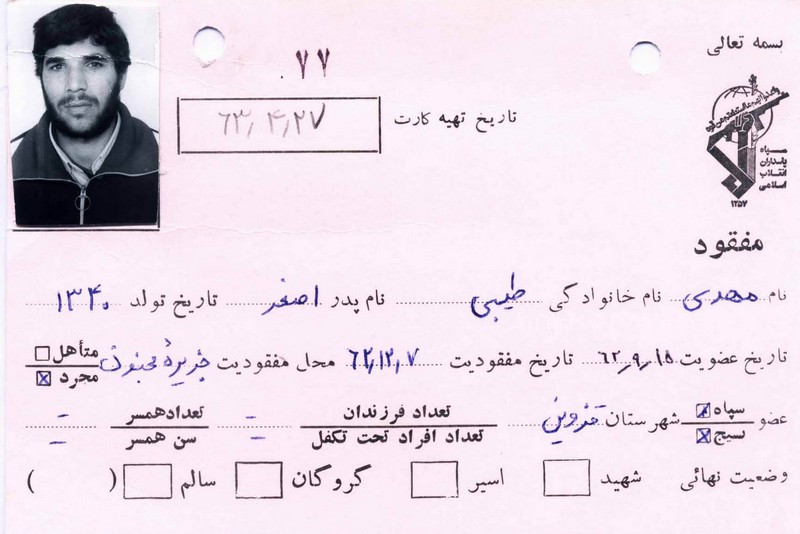 بسمه تعالی
۷۷.
تاریخ تهیه کارت ۶۳٫۴٫۲۷
سپاه
پاسداران
انقلاب
اسلامی
۱۳۵۷
مفقود
نام مهدی نام خانوادگی طیبی نام پدر اصغر تاریخ تولد ۱۳۴۰
تاریخ عضویت ۶۲٫۹٫۱۵ تاریخ مفقودیت ۶۲٫۱۲٫۷ محل مفقودیت جزیره مجنون متأهل ☐ مجرد ☒
عضو سپاه ☒ بسیج ☒ شهرستان قزوین تعداد فرزندان - تعداد افراد تحت تکفل - تعداد همسر - سن همسر -
وضعیت نهائی شهید ☐ اسیر ☐ گروگان ☐ سالم ☐ ( )